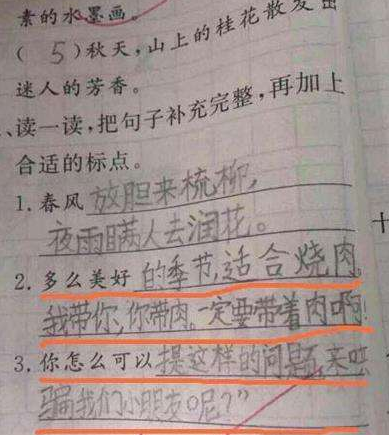 素的水墨画。
（ 5 ）秋天，山上的桂花散发出
迷人的芳香。
、读一读，把句子补充完整，再加上
合适的标点。
1. 春风放胆来梳柳，
夜雨瞒人去润花。
2. 多么美好的季节，适合烧肉。
我带你，你带肉。一定要带着肉啊！
3. 你怎么可以提这样的问题来
骗我们小朋友呢？”
十